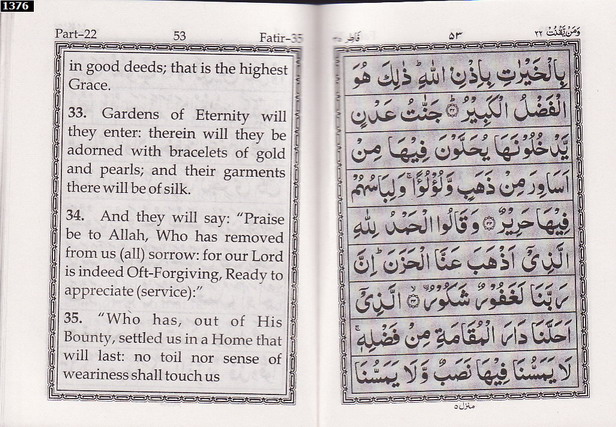 1376
Part–22 53 Fatir–35
in good deeds; that is the highest
Grace.
33. Gardens of Eternity will
they enter: therein will they be
adorned with bracelets of gold
and pearls; and their garments
there will be of silk.
34. And they will say: “Praise
be to Allah, Who has removed
from us (all) sorrow: for our Lord
is indeed Oft-Forgiving, Ready to
appreciate (service):”
35. “Who has, out of His
Bounty, settled us in a Home that
will last: no toil nor sense of
weariness shall touch us
فَاطِر ٣٥ ٥٣ وَمَنْ يَّقْنُتْ ٢٢
بِالْخَيْرٰتِ بِاِذْنِ اللّٰهِ ؕ ذٰلِكَ هُوَ
الْفَضْلُ الْكَبِيْرُ ؕ۝۳۲ جَنّٰتُ عَدْنٍ
يَّدْخُلُوْنَهَا يُحَلَّوْنَ فِيْهَا مِنْ
اَسَاوِرَ مِنْ ذَهَبٍ وَّلُؤْلُؤًا ۚ وَلِبَاسُهُمْ
فِيْهَا حَرِيْرٌ ۝۳۳ وَقَالُوا الْحَمْدُ لِلّٰهِ
الَّذِيْۤ اَذْهَبَ عَنَّا الْحَزَنَ ؕ اِنَّ
رَبَّنَا لَغَفُوْرٌ شَكُوْرٌ ۙ۝۳۴ الَّذِيْۤ
اَحَلَّنَا دَارَ الْمُقَامَةِ مِنْ فَضْلِهٖ ۚ
لَا يَمَسُّنَا فِيْهَا نَصَبٌ وَّلَا يَمَسُّنَا
منزل ٥